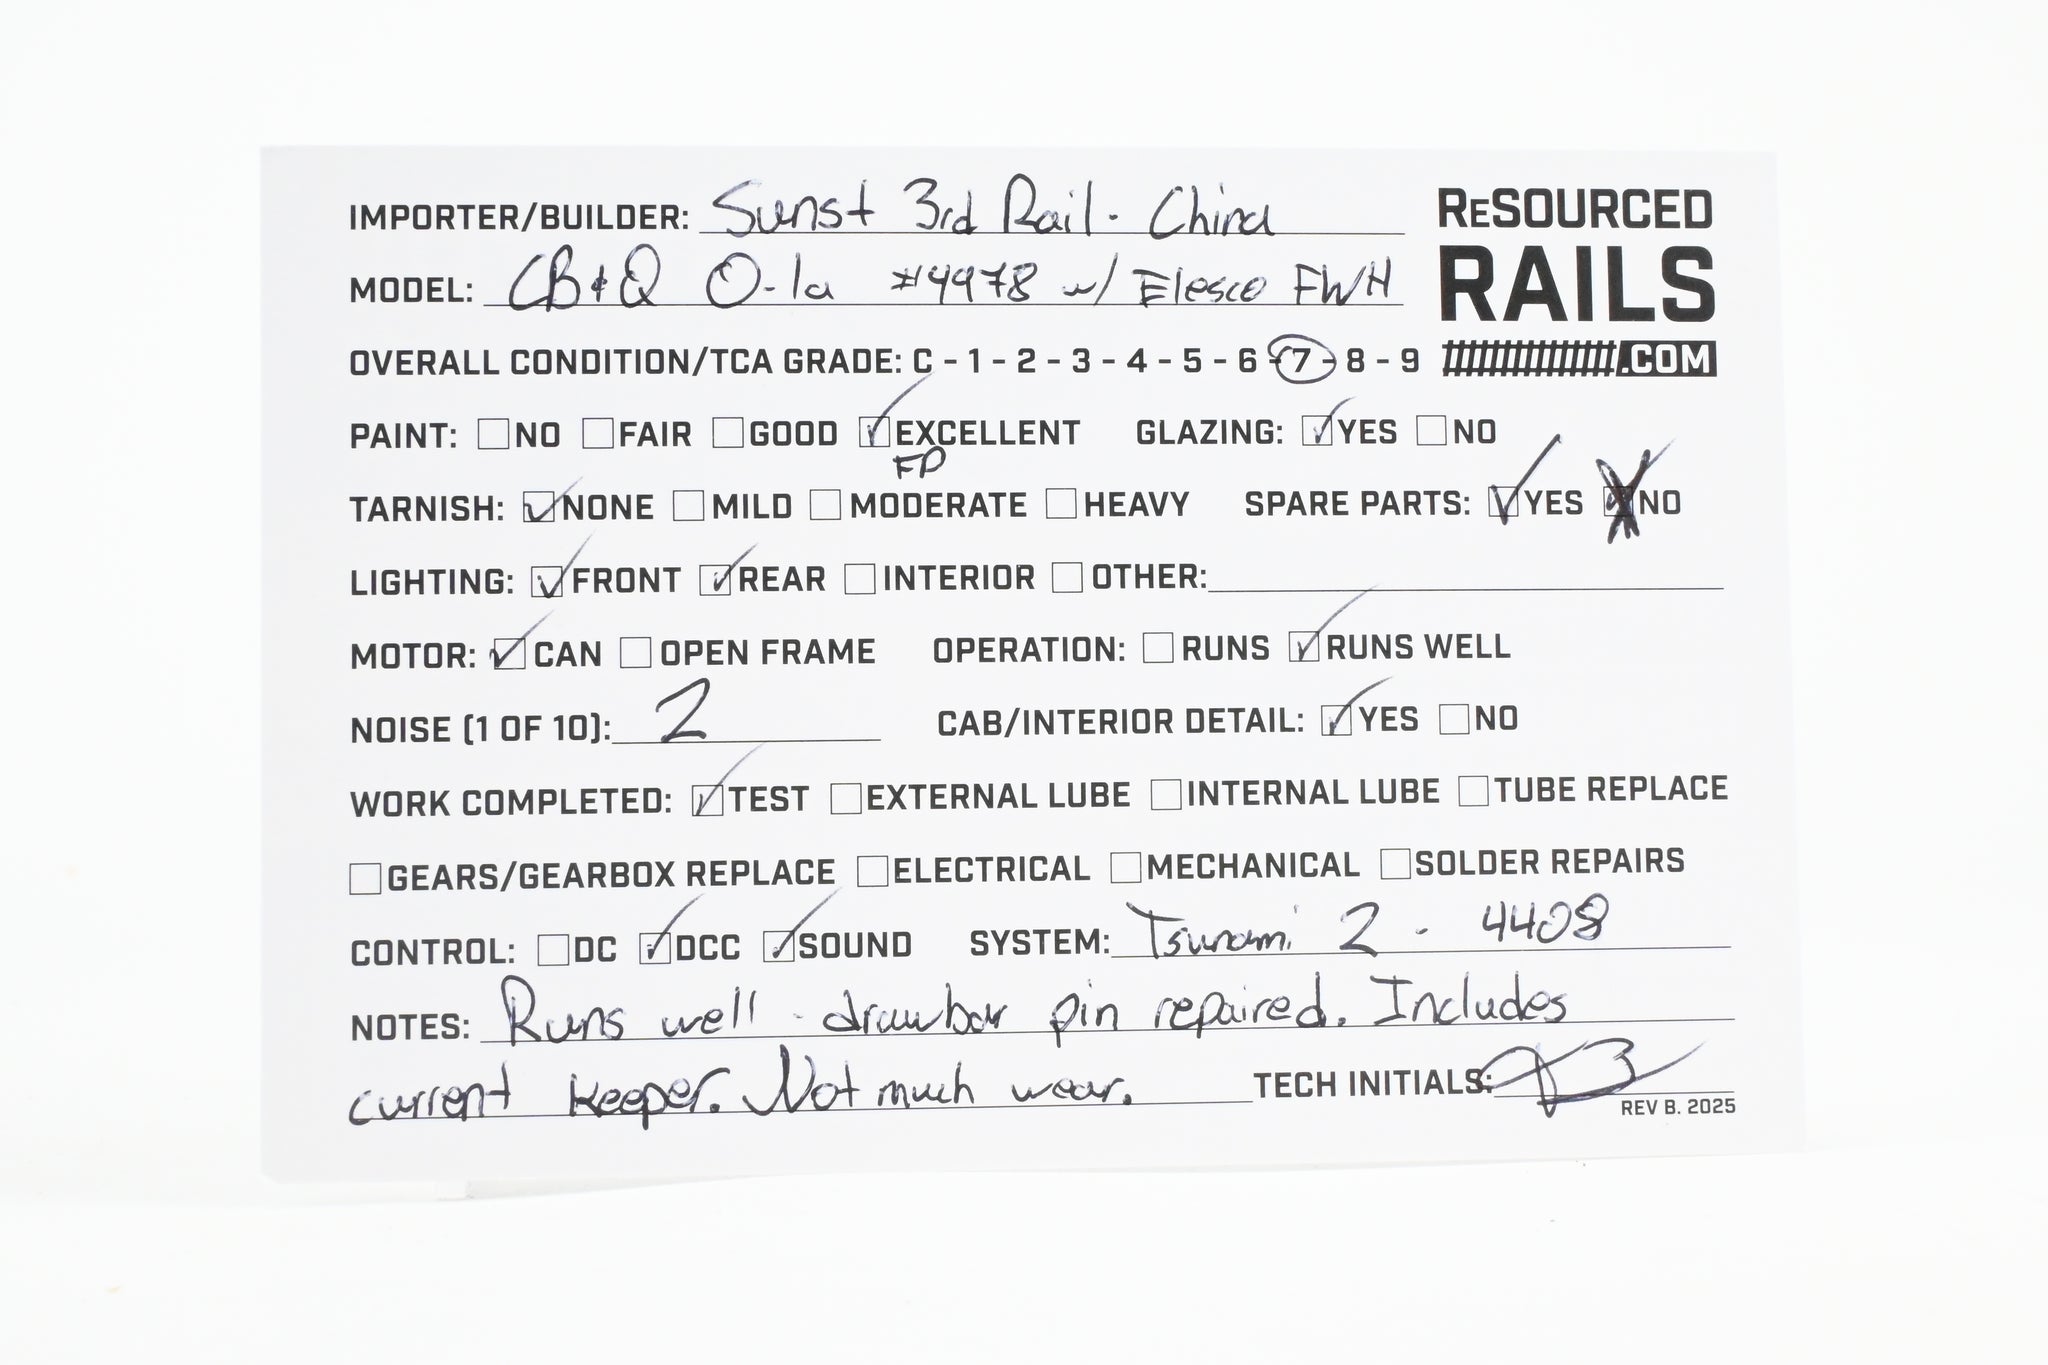 IMPORTER/BUILDER: Sunst 3rd Rail - China
ReSOURCED
RAILS
.COM
MODEL: CB&Q O-1a #4978 w/ Elesco FWH
OVERALL CONDITION/TCA GRADE: C - 1 - 2 - 3 - 4 - 5 - 6 - 7 - 8 - 9
PAINT: NO FAIR GOOD EXCELLENT GLAZING: YES NO
FP
TARNISH: NONE MILD MODERATE HEAVY SPARE PARTS: YES NO
LIGHTING: FRONT REAR INTERIOR OTHER:
MOTOR: CAN OPEN FRAME OPERATION: RUNS RUNS WELL
NOISE (1 OF 10): 2 CAB/INTERIOR DETAIL: YES NO
WORK COMPLETED: TEST EXTERNAL LUBE INTERNAL LUBE TUBE REPLACE
GEARS/GEARBOX REPLACE ELECTRICAL MECHANICAL SOLDER REPAIRS
CONTROL: DC DCC SOUND SYSTEM: Tsunami 2 - 4408
NOTES: Runs well - drawbar pin repaired. Includes
current keeper. Not much wear. TECH INITIALS:
REV B. 2025